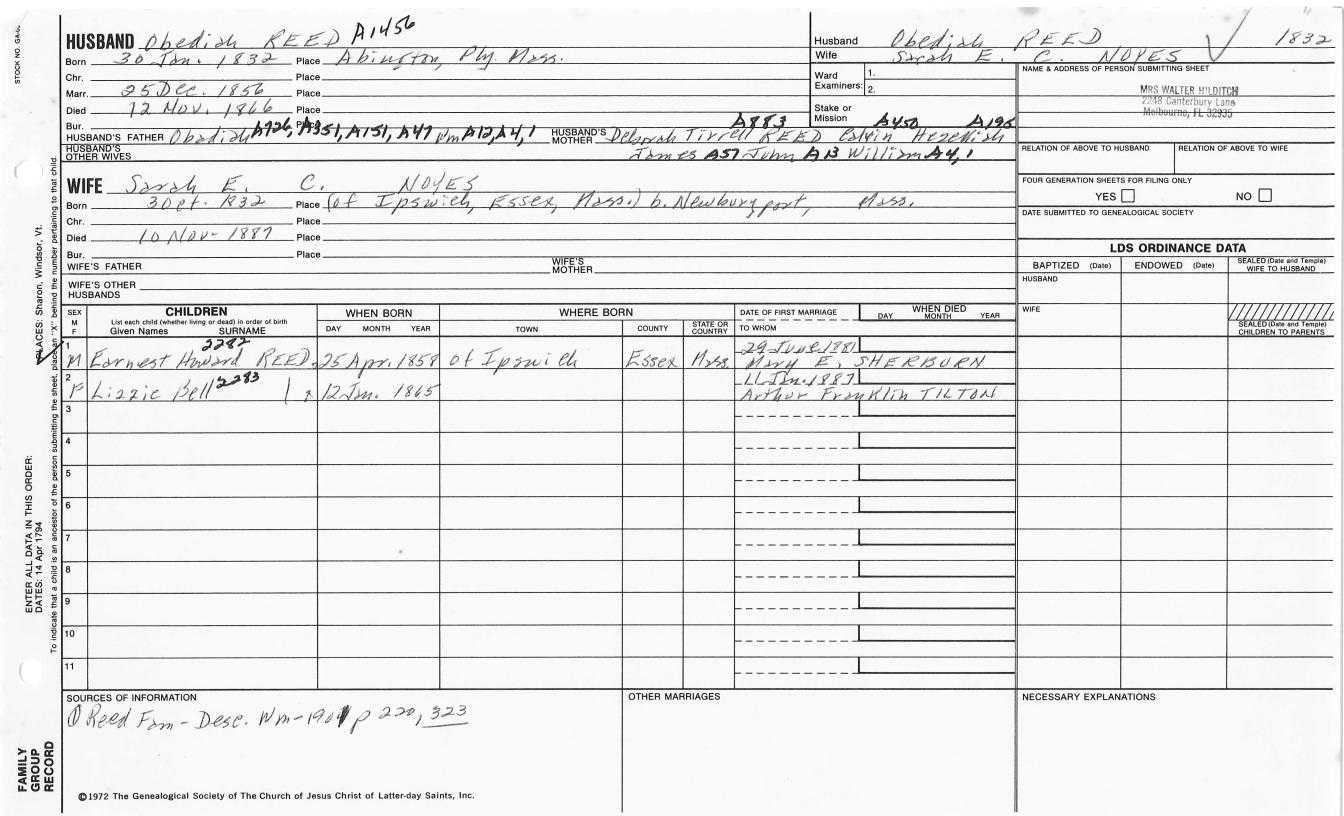 STOCK NO. GA
HUSBAND Obediah REED A1456
Born 30 Jan. 1832 Place Abington, Ply. Mass.
Chr. Place
Marr. 25 Dec. 1856 Place
Died 12 Nov. 1866 Place
Bur. Place
HUSBAND'S FATHER Obadiah A926, A351, A151, A47 Wm A12, A4, 1 HUSBAND'S MOTHER Deborah Tirrell A883 REED Calvin A450 Hezediah A195
HUSBAND'S OTHER WIVES James A57 John A13 William A4, 1
Husband Obediah REED 1832
Wife Sarah E. C. NOYES
Ward Examiners: 1.
2.
Stake or Mission
NAME & ADDRESS OF PERSON SUBMITTING SHEET
MRS WALTER HILDITCH
2248 Canterbury Lane
Melbourne, FL 32935
RELATION OF ABOVE TO HUSBAND RELATION OF ABOVE TO WIFE
FOUR GENERATION SHEETS FOR FILING ONLY
YES NO
DATE SUBMITTED TO GENEALOGICAL SOCIETY
WIFE Sarah E. C. NOYES
Born 3 Oct. 1832 Place (of Ipswich, Essex, Mass.) b. Newburyport, Mass.
Chr. Place
Died 10 Nov- 1887 Place
Bur. Place
WIFE'S FATHER WIFE'S MOTHER
WIFE'S OTHER HUSBANDS
LDS ORDINANCE DATA
BAPTIZED (Date) ENDOWED (Date) SEALED (Date and Temple) WIFE TO HUSBAND
HUSBAND
WIFE
SEALED (Date and Temple) CHILDREN TO PARENTS
SEX M F CHILDREN WHEN BORN WHERE BORN DATE OF FIRST MARRIAGE WHEN DIED
List each child (whether living or dead) in order of birth
Given Names SURNAME DAY MONTH YEAR TOWN COUNTY STATE OR COUNTRY TO WHOM DAY MONTH YEAR
2282
1 29 June 1881
M Earnest Howard REED 25 Apr. 1858 of Ipswich Essex Mass. Mary E. SHERBURN
2 11 Jan. 1883
F Lizzie Bell 2283 12 Jan. 1865 Arthur Franklin TILTON
3
4
5
6
7
8
9
10
11
SOURCES OF INFORMATION OTHER MARRIAGES NECESSARY EXPLANATIONS
① Reed Fam - Desc. Wm - 1901 p 220, 323
©1972 The Genealogical Society of The Church of Jesus Christ of Latter-day Saints, Inc.
FAMILY GROUP RECORD
ENTER ALL DATA IN THIS ORDER:
DATES: 14 Apr 1794
PLACES: Sharon, Windsor, Vt.
To indicate that a child is an ancestor of the person submitting the sheet, place an "X" behind the number pertaining to that child.